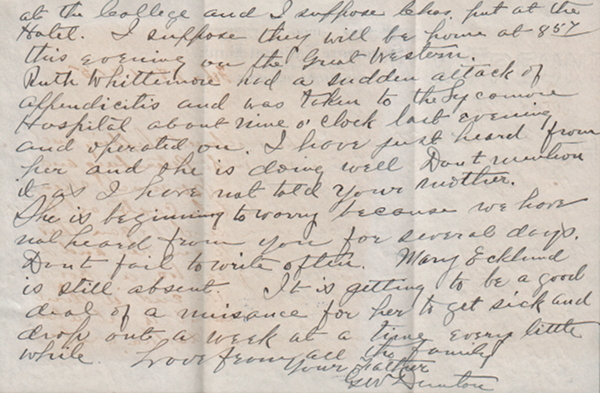 at the College and I suppose Chas. put at the
Hotel. I suppose they will be home at 8 57
this evening on the Great Western.
Ruth Whittemore had a sudden attack of
appendicitis and was taken to the Sycamore
Hospital about nine o'clock last evening
and operated on. I have just heard from
her and she is doing well Dont mention
it as I have not told your mother.
She is beginning to worry because we have
not heard from you for several days.
Dont fail to write often. Mary Ecklund
is still absent. It is getting to be a good
deal of a nuisance for her to get sick and
drop out a week at a time every little
while. Love from all the family
Your Father
GW Dunton